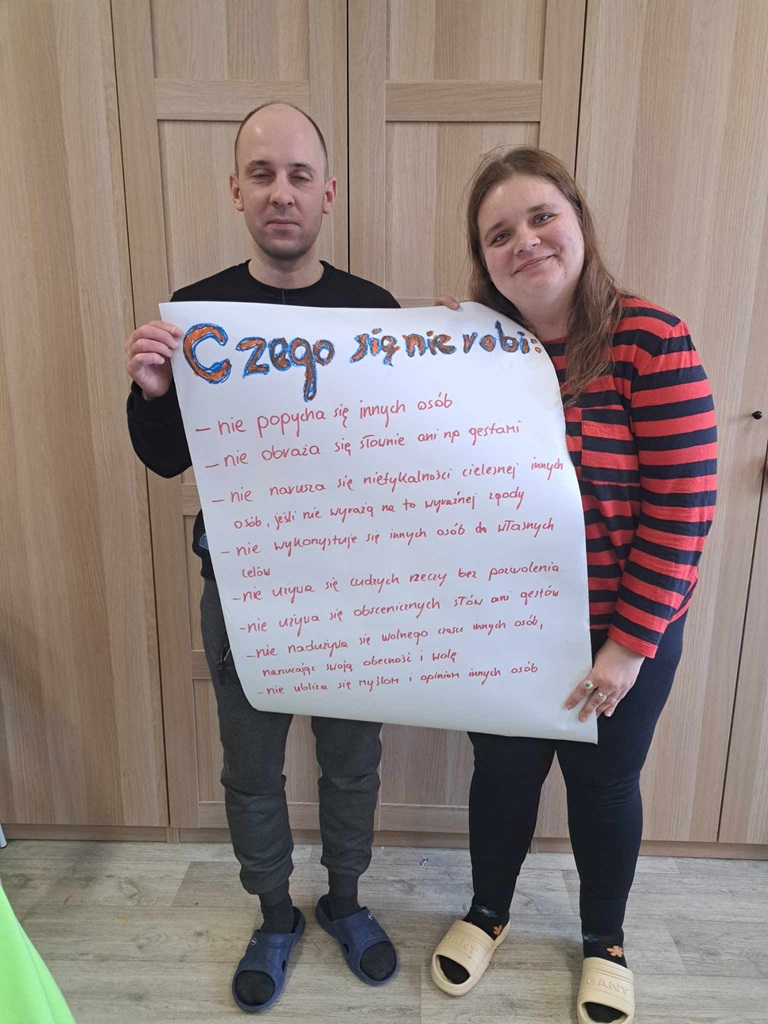 Czego się nie robi:
- nie popycha się innych osób
- nie obraża się słownie ani np gestami
- nie narusza się nietykalności cielesnej innych
osób, jeśli nie wyrażą na to wyraźnej zgody
- nie wykorzystuje się innych osób do własnych
celów
- nie używa się cudzych rzeczy bez pozwolenia
- nie używa się obscenicznych słów ani gestów
- nie nadużywa się wolnego czasu innych osób,
narzucając swoją obecność i wolę
- nie ubliża się myślom i opiniom innych osób
GANT
GANT